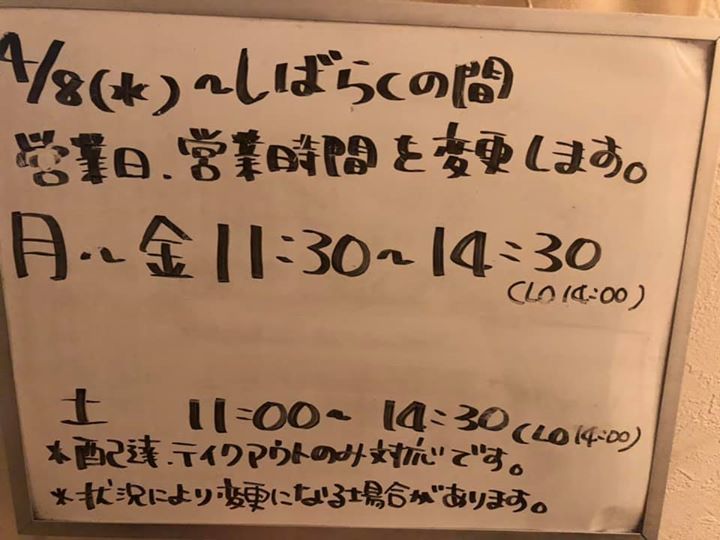 4/8(水)~しばらくの間
営業日、営業時間を変更します。
月~金 11:30~14:30
(LO 14:00)
土 11:00~14:30(LO 14:00)
*配達、テイクアウトのみ対応です。
*状況により変更になる場合があります。